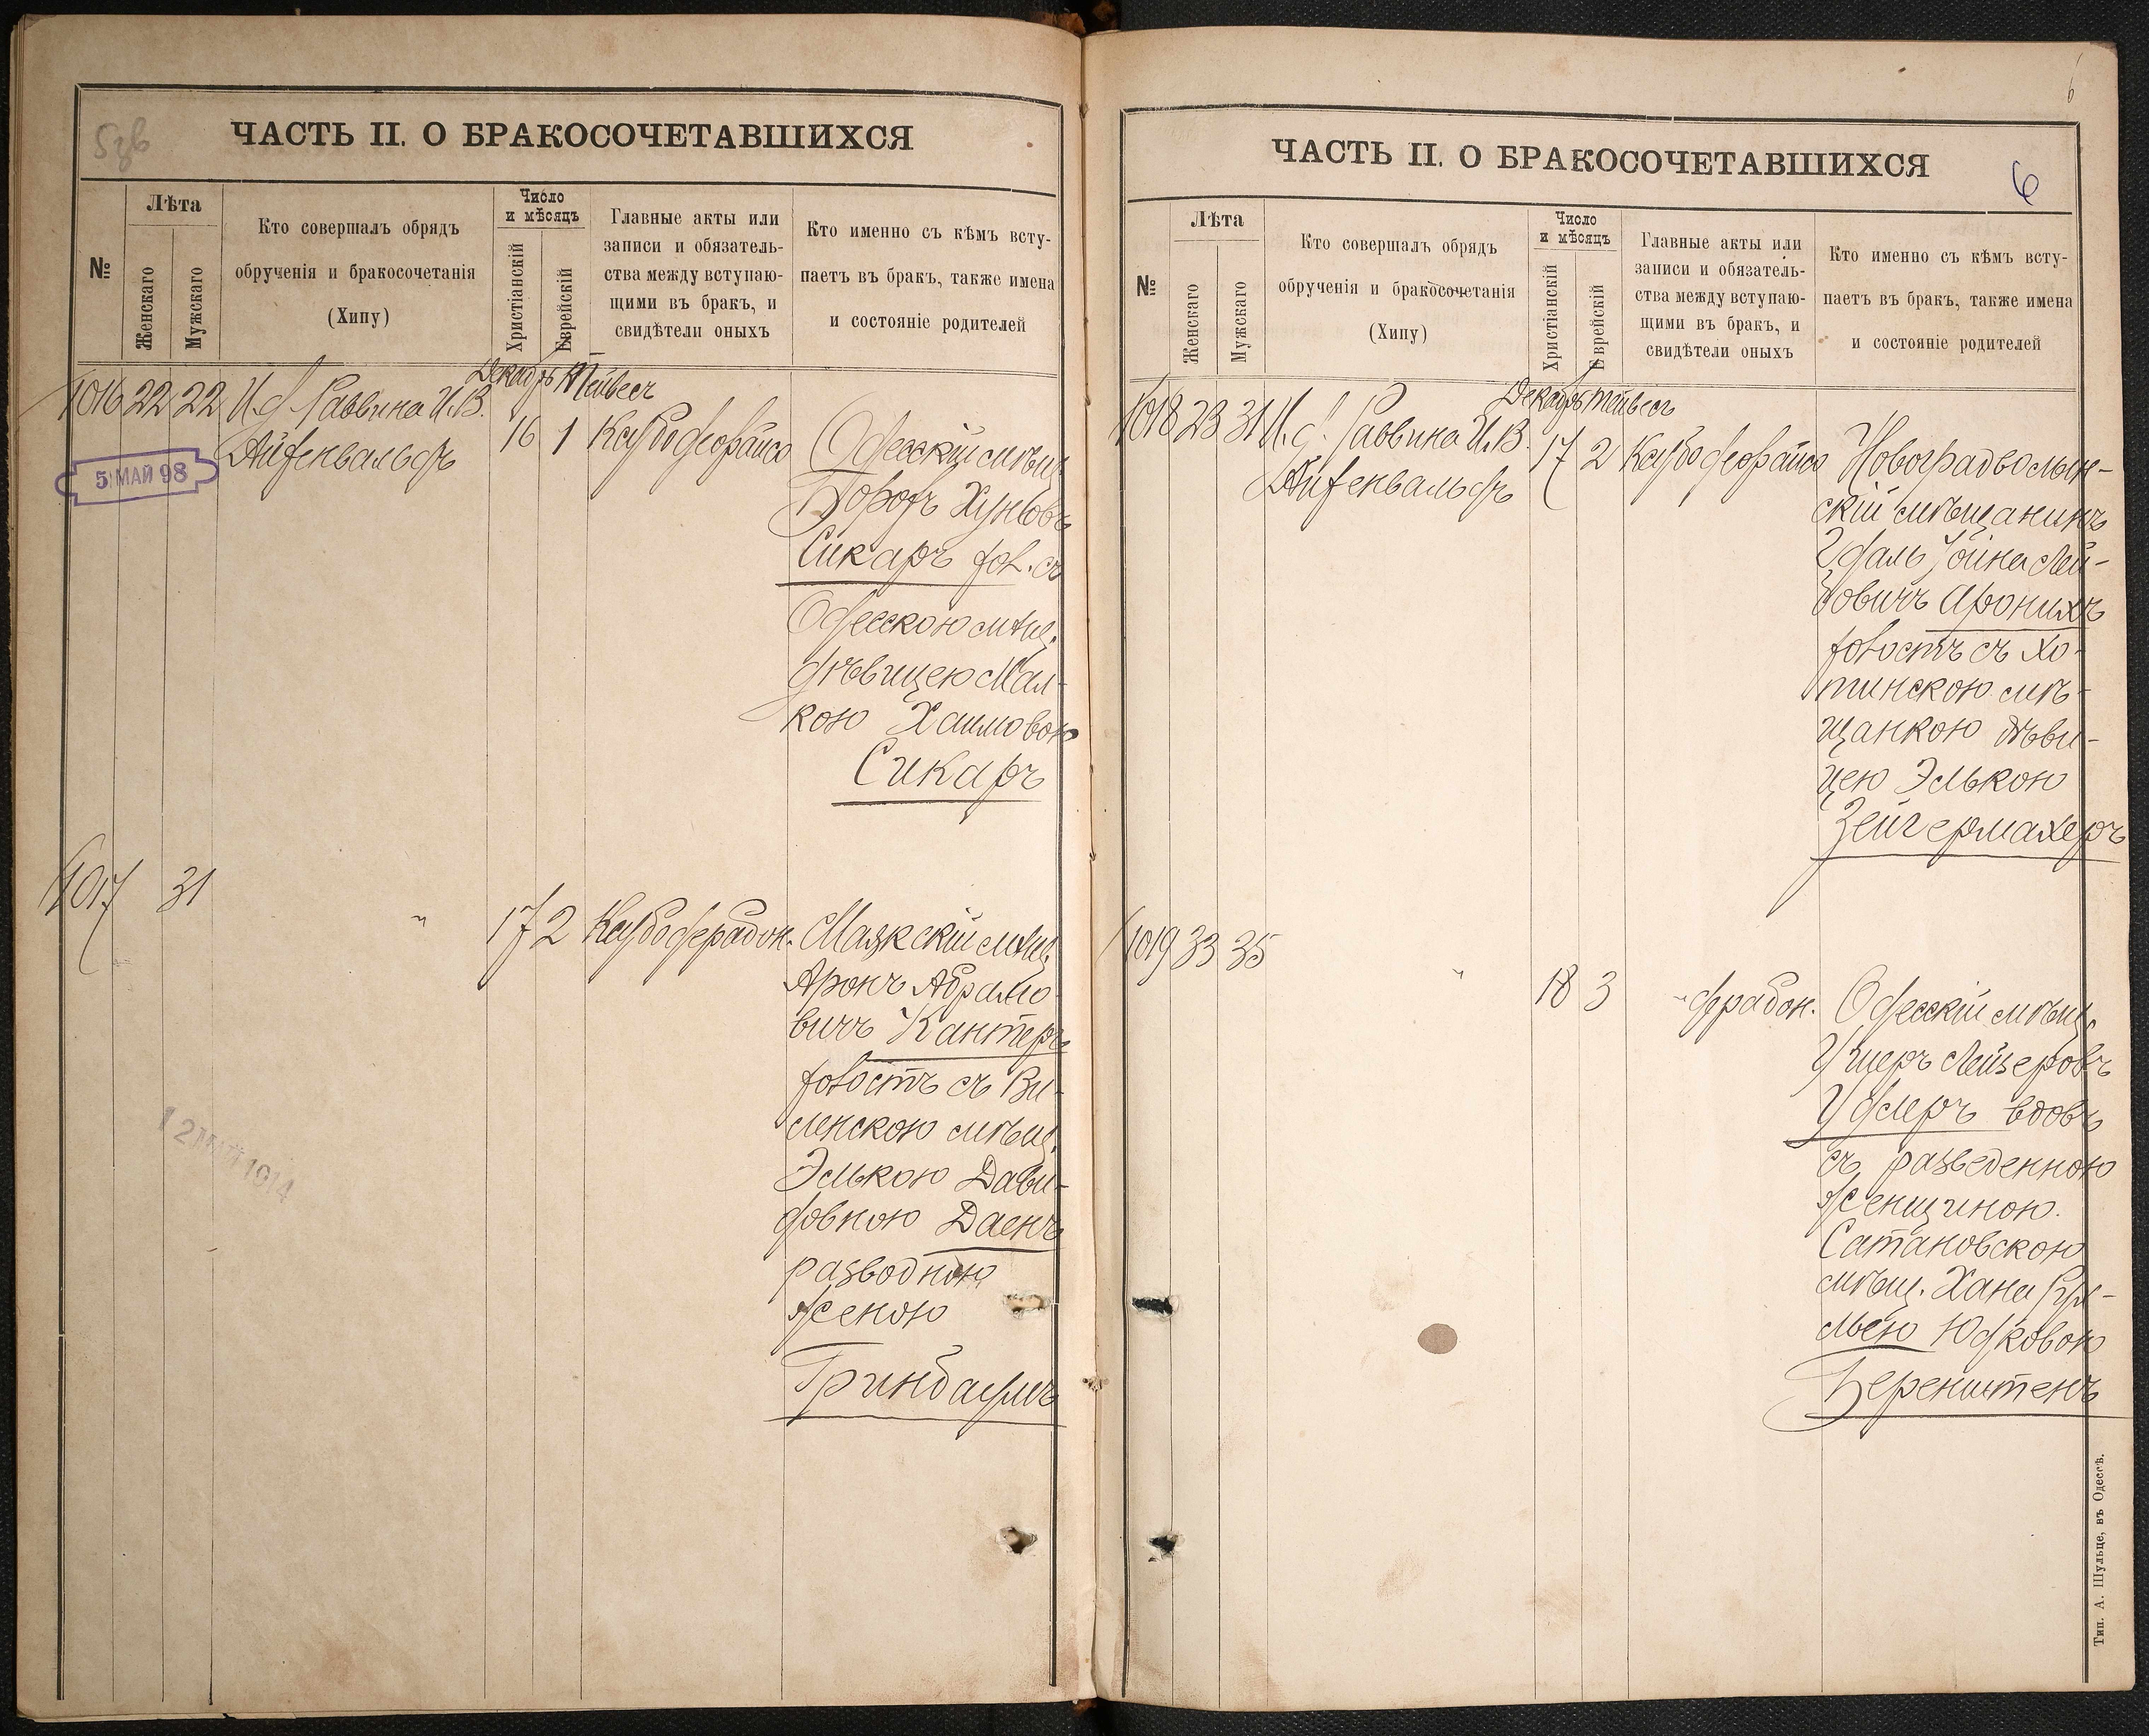 5зв
ЧАСТЬ II. О БРАКОСОЧЕТАВШИХСЯ
№
Лѣта
Женскаго
Мужскаго
Кто совершалъ обрядъ
обрученія и бракосочетанія
(Хипу)
Число
и мѣсяцъ
Христіанскій
Еврейскій
Главные акты или
записи и обязатель-
ства между вступаю-
щими въ бракъ, и
свидѣтели оныхъ
Кто именно съ кѣмъ всту-
паетъ въ бракъ, также имена
и состояніе родителей
Декабрь Тейвесъ
1016 22 22 И. д. Раввина И.В.
Айзенвальдъ
16 1
5 МАЙ 98
Одесскій мѣщ.
Сикаръ хол. съ
Одесскою мѣщ.
дѣвицею Мал-
кою Хаимовою
Сикаръ
1017 31 " 17 2
Маякскій мѣщ.
Аронъ Абрамо-
вичъ Кантеръ
холостъ съ Ви-
ленскою мѣщ.
Элькою Дави-
довною Даенъ
разводною
женою
Гринбаумъ
12 МАЙ 1914
6
ЧАСТЬ II. О БРАКОСОЧЕТАВШИХСЯ
6
№
Лѣта
Женскаго
Мужскаго
Кто совершалъ обрядъ
обрученія и бракосочетанія
(Хипу)
Число
и мѣсяцъ
Христіанскій
Еврейскій
Главные акты или
записи и обязатель-
ства между вступаю-
щими въ бракъ, и
свидѣтели оныхъ
Кто именно съ кѣмъ всту-
паетъ въ бракъ, также имена
и состояніе родителей
Декабрь Тейвесъ
1018 23 31 И. д. Раввина И.В.
Айзенвальдъ
17 2
Новоградволын-
скій мѣщанинъ
Лей-
бовичъ Аронихъ
холостъ съ Хо-
тинскою мѣ-
щанкою дѣви-
цею Элькою
Зейгермахеръ
1019 33 35 " 18 3
Одесскій мѣщ.
Ушеръ Лейзеровъ
вдовъ
съ разведенною
женщиною
Сатановскою
мѣщ. Хана
Юдковою
Беренштенъ
Тип. А. Шульце, въ Одессѣ.